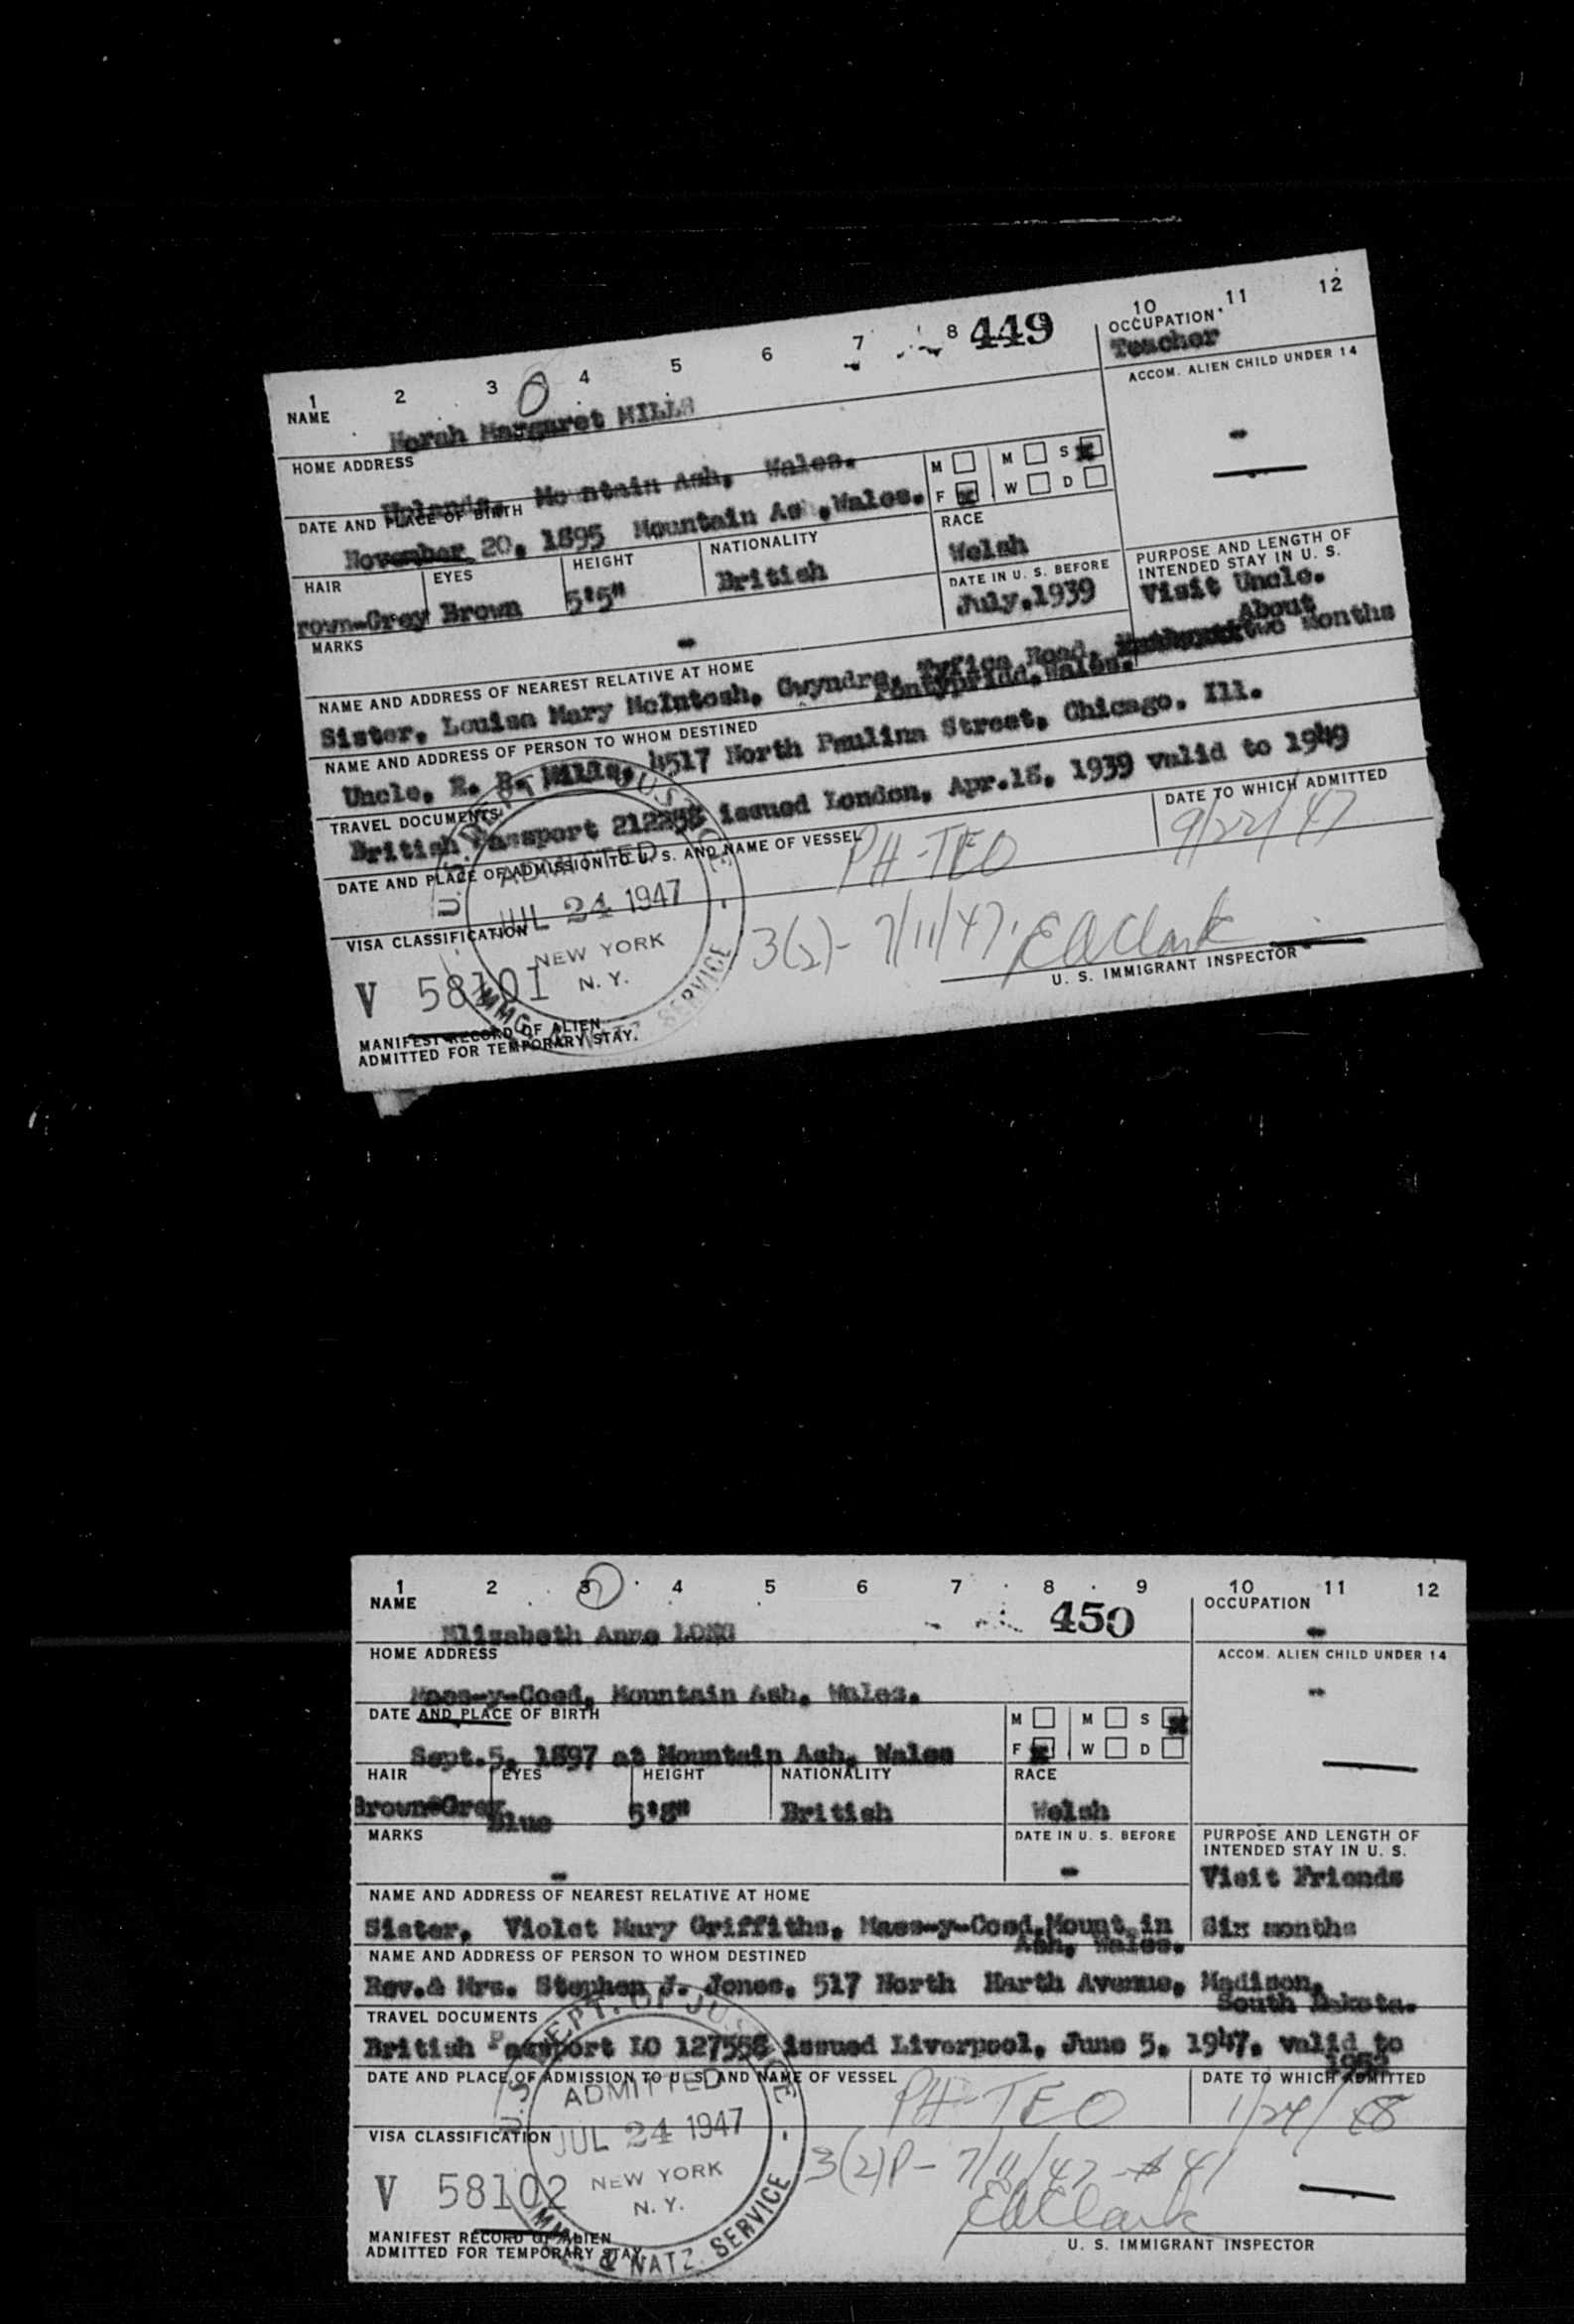 1 2 3 4 5 6 7 8 449 10 11 12
NAME
Norah Margaret MILLS
OCCUPATION
Teacher
ACCOM. ALIEN CHILD UNDER 14
-
HOME ADDRESS
Mountain Ash, Wales.
DATE AND PLACE OF BIRTH
November 20, 1895 Mountain As ,Wales.
M M S
F W D
RACE
Welsh
HAIR EYES HEIGHT NATIONALITY
rown-Grey Brown 5'5" British
DATE IN U. S. BEFORE
July.1939
PURPOSE AND LENGTH OF
INTENDED STAY IN U. S.
Visit Uncle.
About
two Months
MARKS
-
NAME AND ADDRESS OF NEAREST RELATIVE AT HOME
Sister, Louisa Mary McIntosh, Gwyndra, Tyfica Road,
Pontypridd,Wales.
NAME AND ADDRESS OF PERSON TO WHOM DESTINED
Uncle, E. B. Mills, 4517 North Paulina Street, Chicago. Ill.
TRAVEL DOCUMENTS
British Passport issued London, Apr.18, 1939 valid to 1949
DATE AND PLACE OF ADMISSION TO U. S. AND NAME OF VESSEL
PH-TEO
DATE TO WHICH ADMITTED
9/22/47
U.S. DEPT. OF JUSTICE
ADMITTED
JUL 24 1947
NEW YORK
N. Y.
IMMG. & NATZ. SERVICE
VISA CLASSIFICATION
3(2)- 7/11/47. E A Clark
V 58101
U. S. IMMIGRANT INSPECTOR
MANIFEST RECORD OF ALIEN
ADMITTED FOR TEMPORARY STAY.
1 2 3 4 5 6 7 8 9 10 11 12
NAME
450
Elizabeth Anne LONG
OCCUPATION
-
HOME ADDRESS
ACCOM. ALIEN CHILD UNDER 14
-
Maes-y-Coed, Mountain Ash, Wales.
DATE AND PLACE OF BIRTH
Sept.5, 1897 at Mountain Ash, Wales
M M S
F W D
HAIR EYES HEIGHT NATIONALITY RACE
Brown-Grey Blue 5'8" British Welsh
MARKS
-
DATE IN U. S. BEFORE
-
PURPOSE AND LENGTH OF
INTENDED STAY IN U. S.
Visit Friends
Six months
NAME AND ADDRESS OF NEAREST RELATIVE AT HOME
Sister, Violet Mary Griffiths, Maes-y-Coed,Mount in
Ash, Wales.
NAME AND ADDRESS OF PERSON TO WHOM DESTINED
Rev.& Mrs. Stephen J. Jones, 517 North Harth Avenue, Madison,
South Dakota.
TRAVEL DOCUMENTS
British Passport LO 127558 issued Liverpool, June 5, 1947, valid to
1952
DATE AND PLACE OF ADMISSION TO U. S. AND NAME OF VESSEL
PH-TEO
DATE TO WHICH ADMITTED
1/24/48
U.S. DEPT. OF JUSTICE
ADMITTED
JUL 24 1947
NEW YORK
N. Y.
IMMG. & NATZ. SERVICE
VISA CLASSIFICATION
3(2)P- 7/11/47
V 58102
E A Clark
U. S. IMMIGRANT INSPECTOR
MANIFEST RECORD OF ALIEN
ADMITTED FOR TEMPORARY STAY.